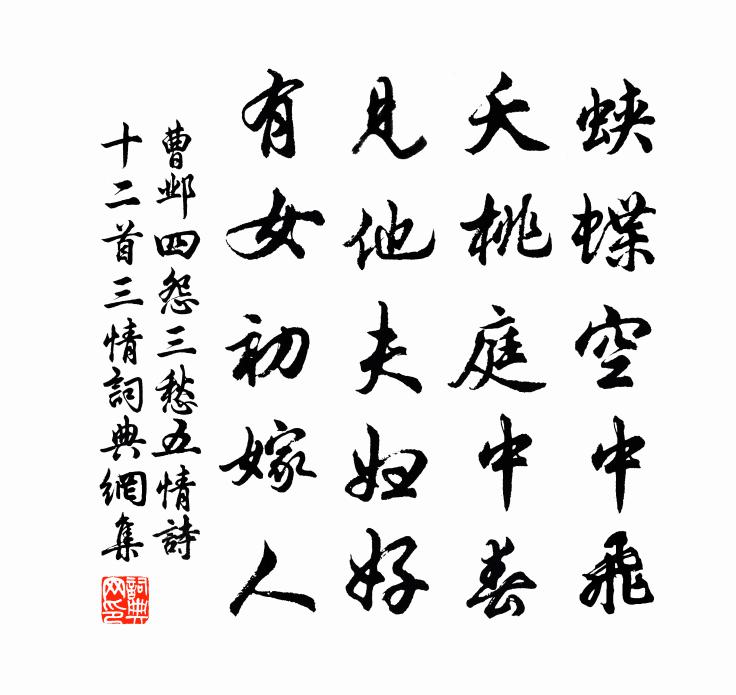 蛺蝶空中飛
夭桃庭中春
見他夫婦好
有女初嫁人
曹鄴四怨三愁五情詩
十二首三情詞典網集
詞典網印